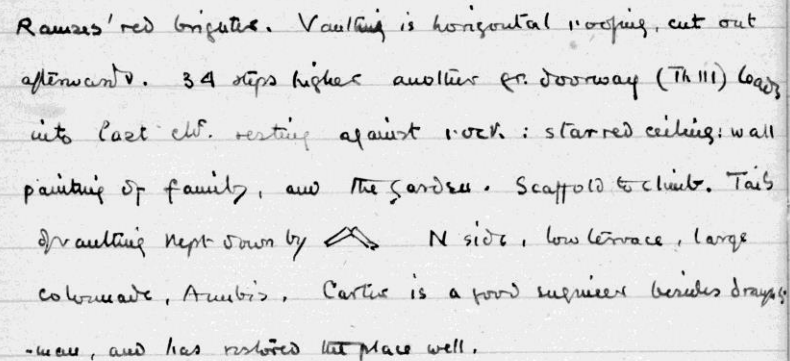 Ramses' red brighter. Vaulting is horizontal roofing, cut out
afterwards. 34 steps higher another gr. doorway (Th III) leads
into last ch. resting against rock : starred ceiling : wall
painting of family, and the garden. Scaffold to climb. Tails
of vaulting kept down by N side, low terrace, large
colonnade, Anubis. Carter is a good engineer besides draughts
-man, and has restored the place well.